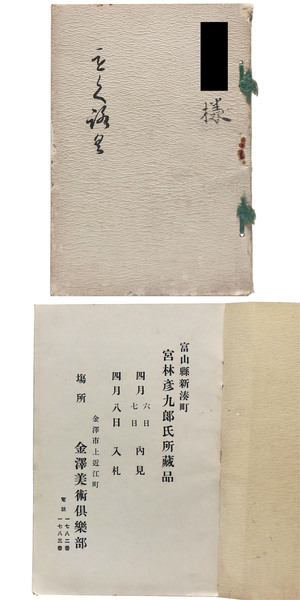 樣
富山縣新湊町
宮林彦九郎氏所藏品
四月 六日 內見
七日
四月八日 入札
塲所
金澤市上近江町
金澤美術俱樂部
電話 一七八二番
一七八三番